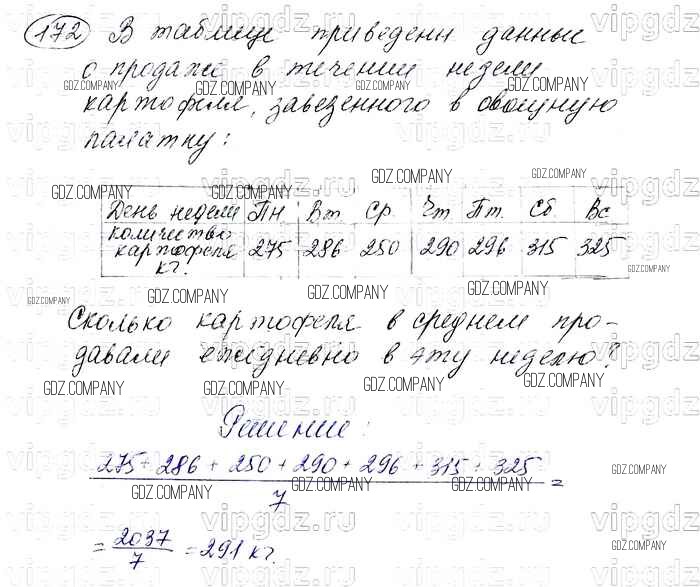 172 В таблице приведены данные
о продаже в течении недели
картофеля, завезенного в овощную
палатку:
День недели Пн Вт Ср Чт Пт Сб Вс
количество картофеля кг. 275 286 250 290 296 315 325
Сколько картофеля в среднем про-
давали ежедневно в эту неделю?
Решение:
275 + 286 + 250 + 290 + 296 + 315 + 325
7 =
= 2037/7 = 291 кг.
GDZ.COMPANY
vipgdz.ru